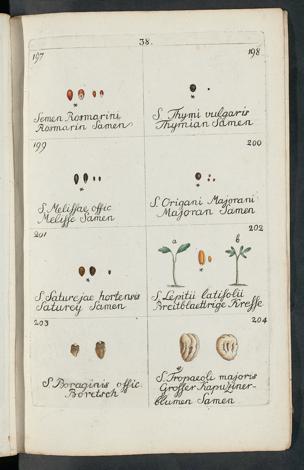 38.
197
Semen Rosmarini
Rosmarin Samen
198
S. Thymi vulgaris
Thymian Samen
199
S. Melissae offic
Melisse Samen
200
S. Origani Majorani
Majoran Samen
201
S. Saturejae hortensis
Saturey Samen
202
a
b
S. Lepitii latifolii
Breitblaettrige Kresse
203
S. Boraginis offic.
Boretsch
204
S. Tropaeoli majoris
Grosser Kapuziner-
blumen Samen